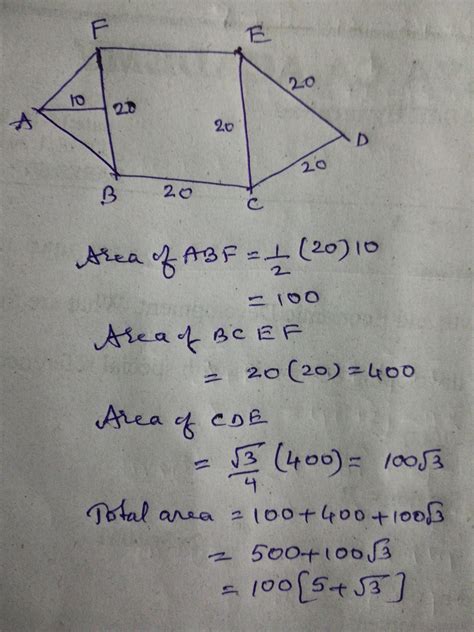 F
E
20
10
A
20
20
D
20
B
20
C
Area of ABF = 1/2 (20) 10
= 100
Area of BCEF
= 20 (20) = 400
Area of CDE
= √3/4 (400) = 100√3
Total area = 100 + 400 + 100√3
= 500 + 100√3
= 100 [5 + √3]